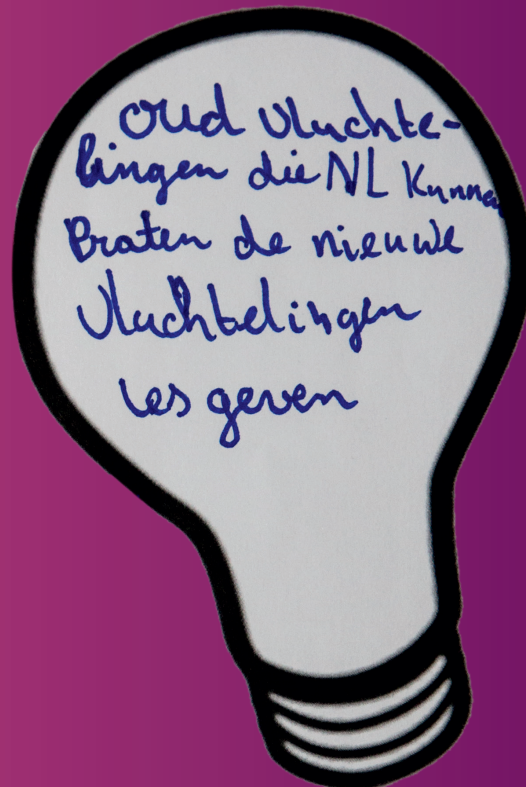 oud vluchte-
lingen die NL kunnen
Praten de nieuwe
Vluchtelingen
les geven